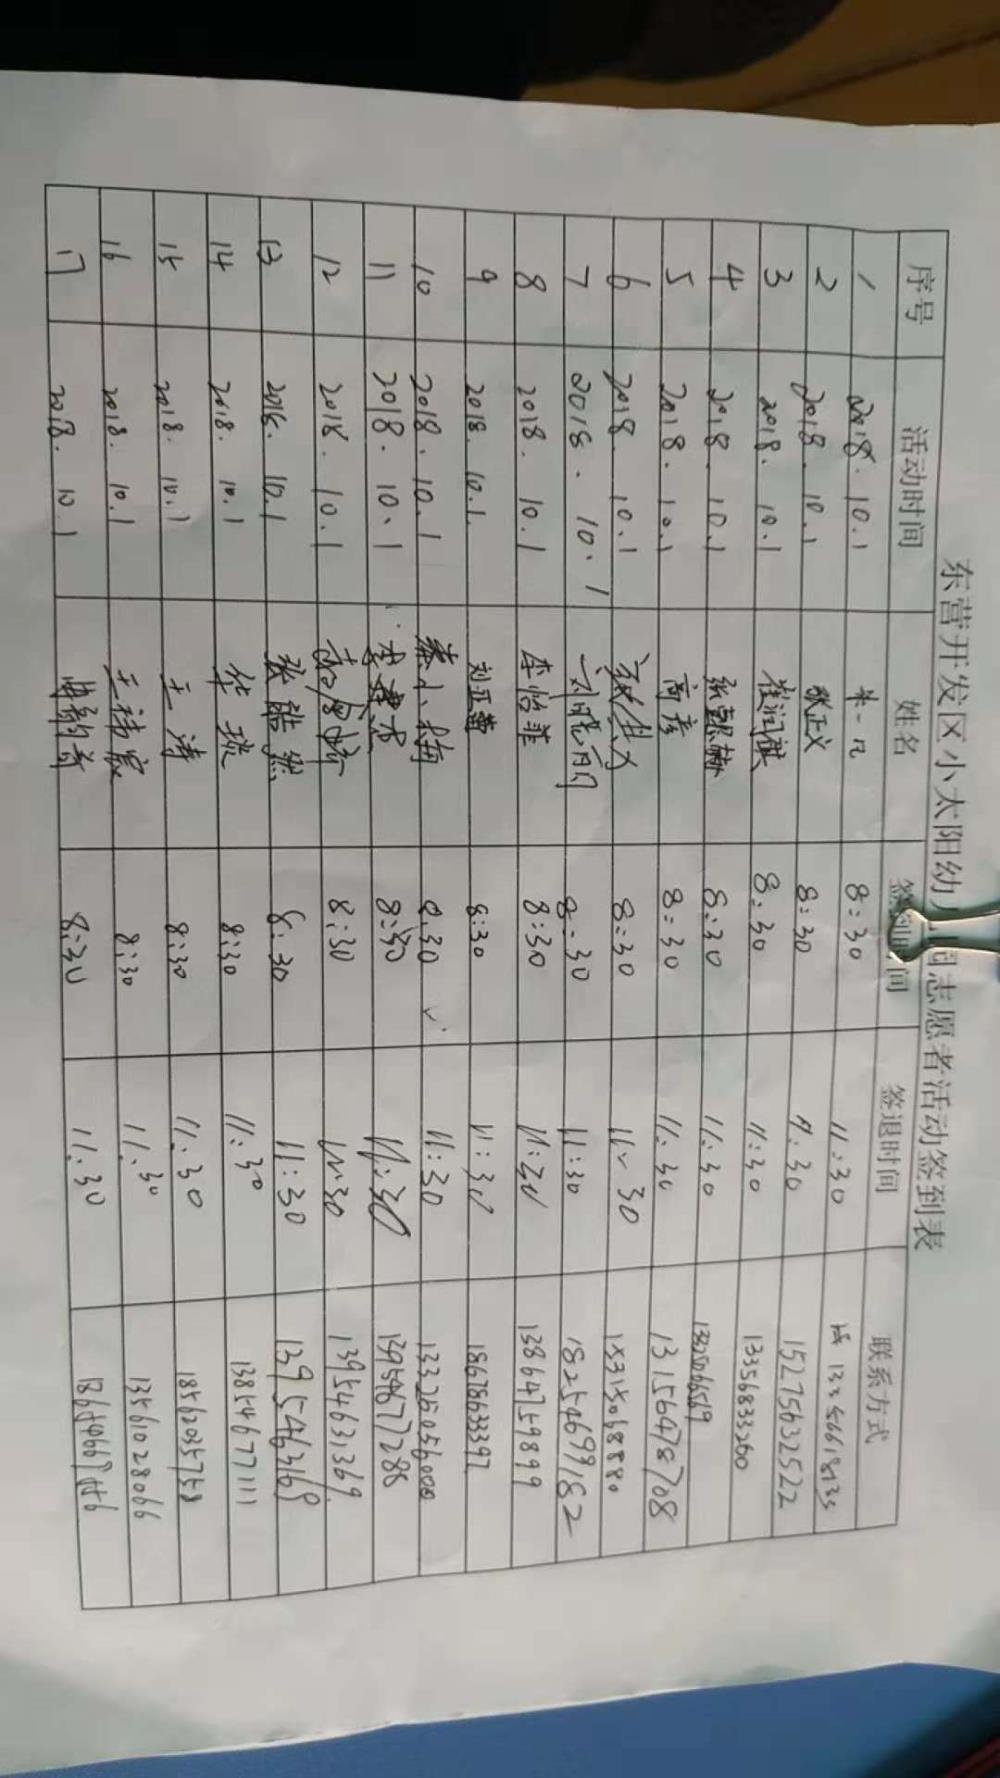 东营开发区小太阳幼儿园志愿者活动签到表
序号 活动时间 姓名 签到时间 签退时间 联系方式
1 2018.10.1 8:30 11:30
2 2018.10.1 张正义 8:30 11:30 15275632522
3 2018.10.1 崔润祺 8:30 11:30 13356833260
4 2018.10.1 8:30 11:30
5 2018.10.1 高彦 8:30 11:30 13156478708
6 2018.10.1 8:30 11:30 15315068880
7 2018.10.1 刘晓丽 8:30 11:30 18254699182
8 2018.10.1 李怡菲 8:30 11:30 13864759899
9 2018.10.1 刘亚蕾 8:30 11:30 18678633397
10 2018.10.1 秦小楠 8:30 11:30 13325056000
11 2018.10.1 8:30 11:30 13954677286
12 2018.10.1 8:30 11:30 13954631369
13 2018.10.1 张皓然 8:30 11:30
14 2018.10.1 华琰 8:30 11:30 13854677111
15 2018.10.1 王涛 8:30 11:30 18562035758
16 2018.10.1 王祎宸 8:30 11:30 13561028066
17 2018.10.1 8:30 11:30